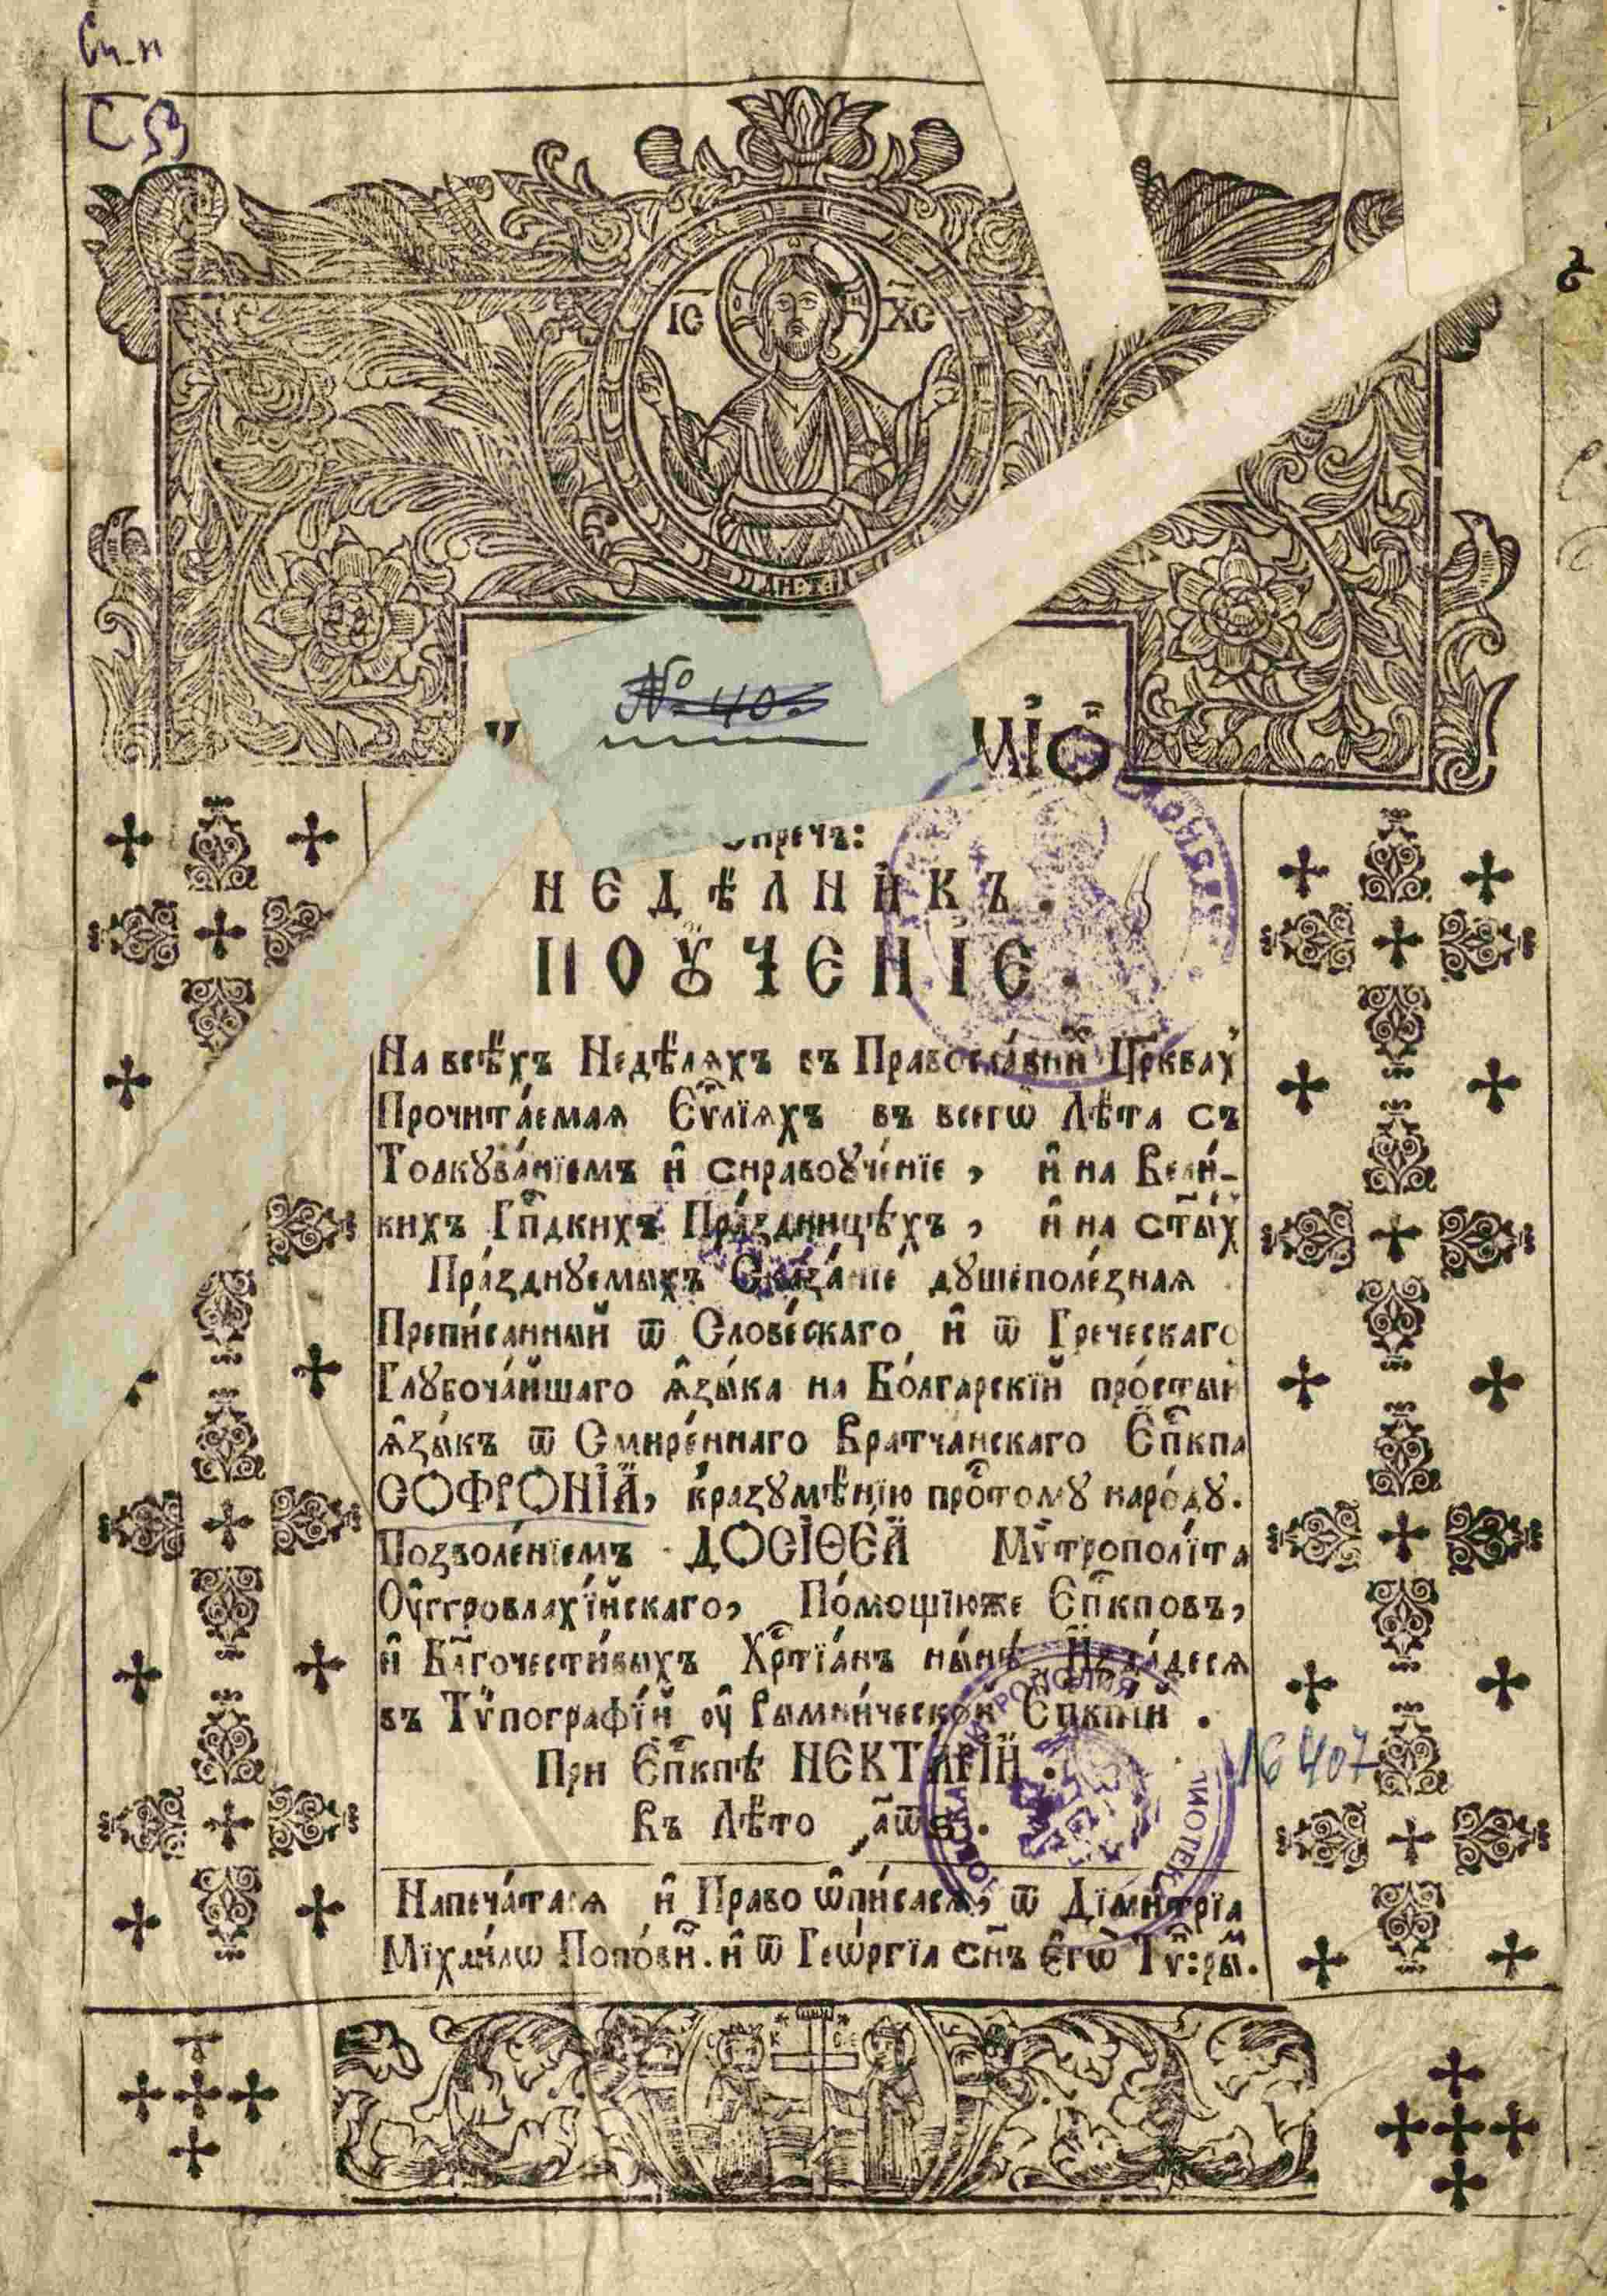 С59
І҃С Х҃С
№ 40.
сиречъ:
НЕДѢЛНИКЪ.
ПОꙋЧЕНІЕ.
На всѣхъ Недѣляхъ въ Правосла́вни Цр҃квах
Прочита́емая Єѵ҃лїяхъ въ всегѡ Лѣта съ
Толкꙋва́нїемъ и҆ снравоꙋче́нїе, и҆ на Вели́-
кихъ Гпⷭ҇дкихъ Пра́здницѣхъ, и҆ на ст҃ы́х
Пра́зднꙋемыхъ Сказа́нїе дꙋшеполе́зная
Препи́санный ѿ Слове́скаго и҆ ѿ Греческаго
Глꙋбоча́йшаго ꙗ҆зы́ка на Бо́лгарскїй про́стый
ꙗ҆зы́къ ѿ Смире́ннаго Вратча́нскаго Єпⷭ҇кпа
СОФРО́НЇА, кразꙋмѣ́нїю проⷭ҇томꙋ наро́дꙋ.
Позволе́нїемъ ДОСЇѲЕ́А Мѵтрополі́та
Оу҆ггровлахі́йскаго, По́мощїюже Єпⷭ҇кповъ,
и҆ Бл҃гочести́выхъ Хрⷭ҇тїа́нъ ны́нѣ И҆зда́деся
въ Тѵпографі́й оу҆ Рымни́ческой Єпⷭ҇кпїи.
При Єпⷭ҇кпѣ НЕКТА́РІЙ.
Въ Лѣто ҂аѿѕ.
16407
Напеча́тася и҆ Право ѡ҆пи́сася, ѿ Дїми́трїа
Мїха́илѡ Попо́виⷱ. и҆ ѿ Геѡ́ргїа сн҃ъ є҆гѡ̀ Тѵⷫ҇:рыⷨ.